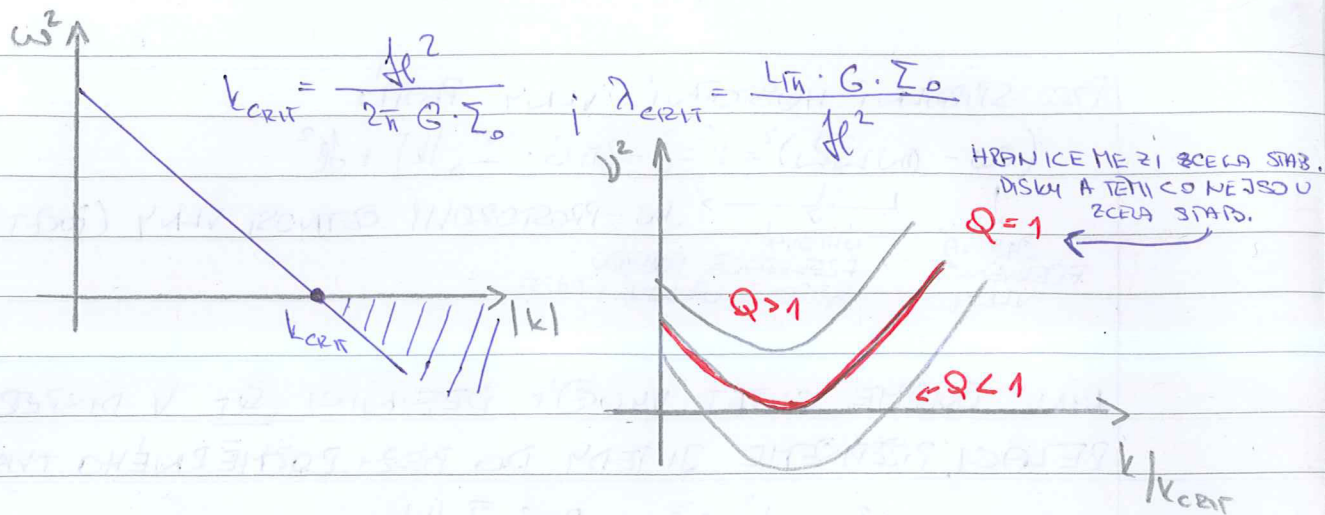 ω²
k_CRIT = ϰ² / 2π G·Σ₀ ; λ_CRIT = 4π·G·Σ₀ / ϰ²
ν²
HRANICE MEZI ZCELA STAB.
DISKY A TĚMI CO NEJSOU
ZCELA STAB.
Q = 1
Q > 1
|k|
k_CRIT
Q < 1
k/k_CRIT